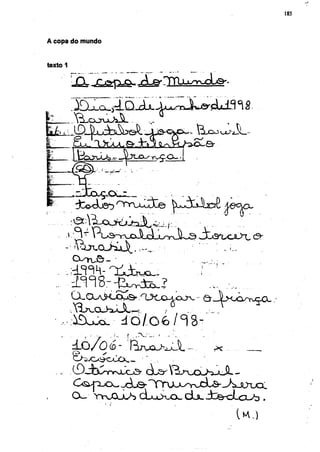 185
A copa do mundo
texto 1
A copa do Mundo.
Dia, 10 de junho de 1998
Barisl
O futebol joga. Barsil.
Eu viu o televisão
Paris - frança.
taça -
todos muito futebol joga
o Barisil
9 - Ronaldinho torcer o
Brasil.
ano -
1994 - Tetra
1998 - Penta?
O avião viajar o frança.
Brasil
Dia 10/06/98 -
10/06 - Brasil - x
Escócia -
O técnico do Brasil -
Copa do Mundo sera
a mais dura de todas.
(M.)